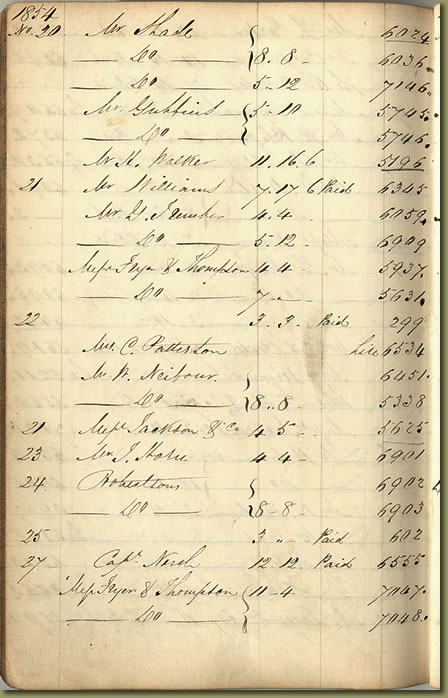 1854
No. 20 Mr Shade { 6024
— Do — } 8. 8 - 6036
— Do — 5 - 12 7146.
Mr. Gubbins { 5 - 10 5745.
— Do — } 5746.
Mr H. Walker 11. 16. 6 5196
21 Mr Williams 7. 17 6 Paid 6345
Mr. 4. 4 - 6059.
— Do — 5. 12 - 6909
Messrs Fryer & Thompson 4 4 - 5937.
— Do — 7 - - 5631.
22 3. 3. Paid 299
Mrs. C. Patterson 6534
Mr. W. Neibour. } 6451.
— Do — } 8. . 8 - 5338
21 Messrs Jackson & Co 4 5 - - 5625
23 Mr J. Hore 4 4 6901
24 Robertsons { 6902
— Do — } 8 - 8 - 6903
25 3 " - Paid 602
27 Capt. Nash 12 - 12. Paid 6555
Messrs Fryer & Thompson { 11 - 4 7047.
— Do — } 7048.